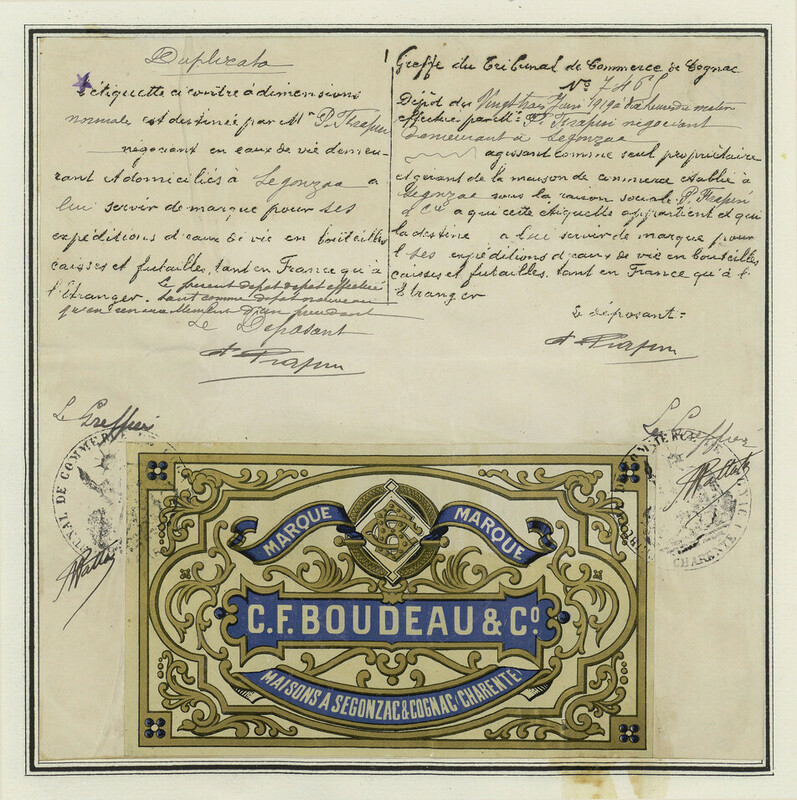 Duplicata
L'étiquette ci contre à dimensions
normale est destinée par Mr P. Frapin
négociant en eaux de vie demeu-
rant & domiciliés à Segonzac a
lui servir de marque pour ses
expéditions d'eaux de vie en bouteilles
caisses et futailles, tant en France qu'à
l'Etranger. Le présent dépôt est effectué
tant comme dépôt nouveau
qu'en renouvellement d'un précédent
Le Déposant
P. Frapin
Greffe du Tribunal de Commerce de Cognac
No 746
Dépôt du Vingt trois Juin 1919 à dix heures du matin
effectué par Mr P. Frapin négociant
demeurant à Segonzac
agissant comme seul propriétaire
et gérant de la maison de commerce établie à
Segonzac sous la raison sociale P. Frapin
& Cie a qui cette étiquette appartient et qui
la destine a lui servir de marque pour
ses expéditions d'eaux de vie en bouteilles
caisses et futailles, tant en France qu'à l'
Etranger
Le déposant:
P. Frapin
Le Greffier
Le Greffier
TRIBUNAL DE COMMERCE
CHARENTE
MARQUE
MARQUE
C.F. BOUDEAU & Co.
MAISONS A SEGONZAC & COGNAC (CHARENTE)